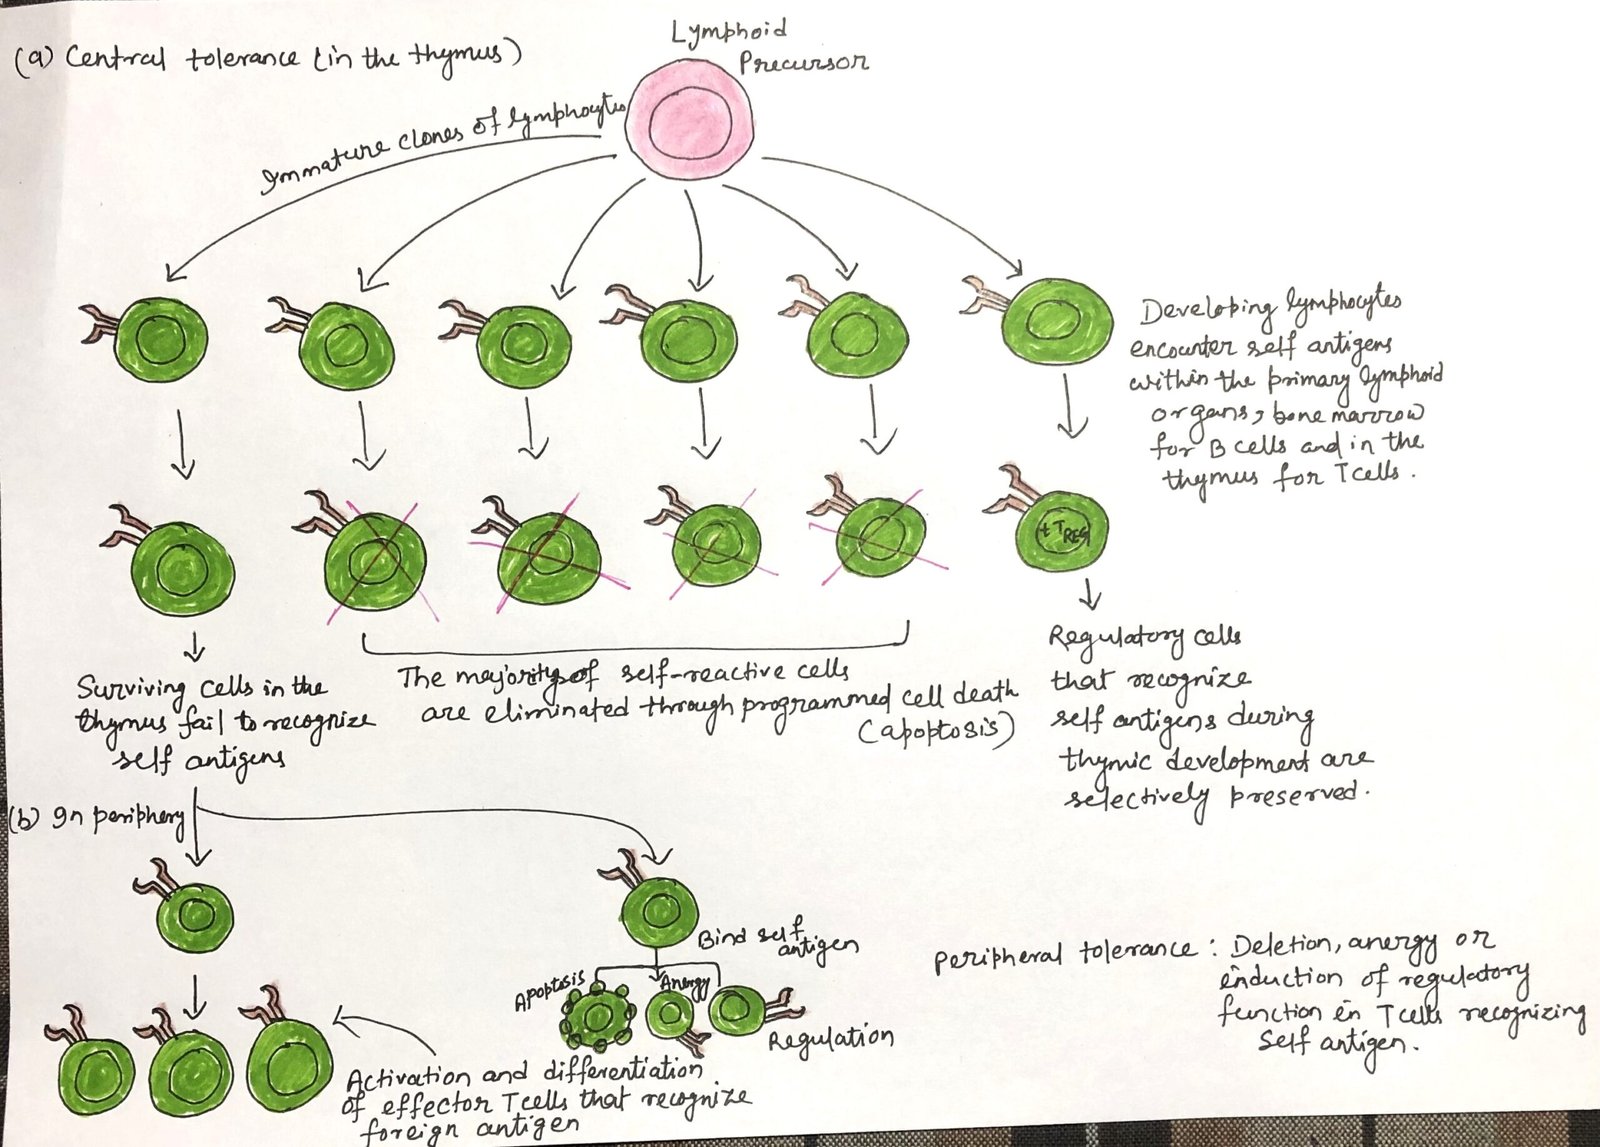 (a) Central tolerance (in the thymus)
Lymphoid
Precursor
Immature clones of lymphocytes
Developing lymphocytes
encounter self antigens
within the primary lymphoid
organs, bone marrow
for B cells and in the
thymus for T cells.
tTREG
Surviving cells in the
thymus fail to recognize
self antigens
The majority of self-reactive cells
are eliminated through programmed cell death
(apoptosis)
Regulatory cells
that recognize
self antigens during
thymic development are
selectively preserved.
(b) In periphery
Bind self
antigen
Apoptosis
Anergy
Regulation
Activation and differentiation
of effector T cells that recognize
foreign antigen
Peripheral tolerance : Deletion, anergy or
induction of regulatory
function in T cells recognizing
self antigen.